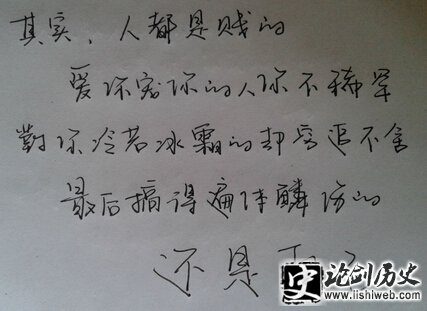 其实，人都是贱的
爱你宠你的人你不稀罕
對你冷若冰霜的却穷追不舍
最后搞得遍体鳞伤的
还是
史 论剑历史
www.lishiweb.com